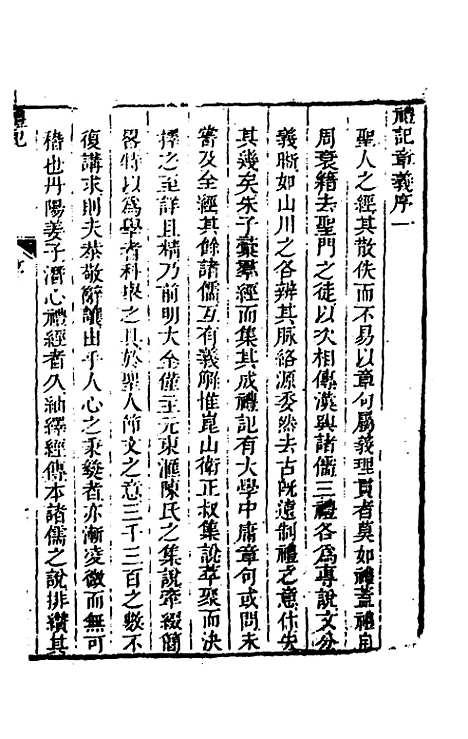 禮記章義序一
聖人之經其散佚而不易以章句屬義理貫者莫如禮蓋禮自
周衰籍去聖門之徒以次相傳漢興諸儒三禮各為專說文分
義斷如山川之各辨其脉絡源委然去古旣遠制禮之意佚失
其幾矣朱子彙羣經而集其成禮記有大學中庸章句或問未
嘗及全經其餘諸儒互有義解惟崑山衛正叔集說萃聚而決
擇之至詳且精乃前明大全僅主元東滙陳氏之集說牽綴簡
畧特以為學者科舉之具於聖人節文之意三千三百之數不
復講求則夫恭敬辭讓出乎人心之秉彝者亦漸凌微而無可
稽也丹陽姜子潛心禮經者久紬繹經傳本諸儒之說排纘其
禮記
序